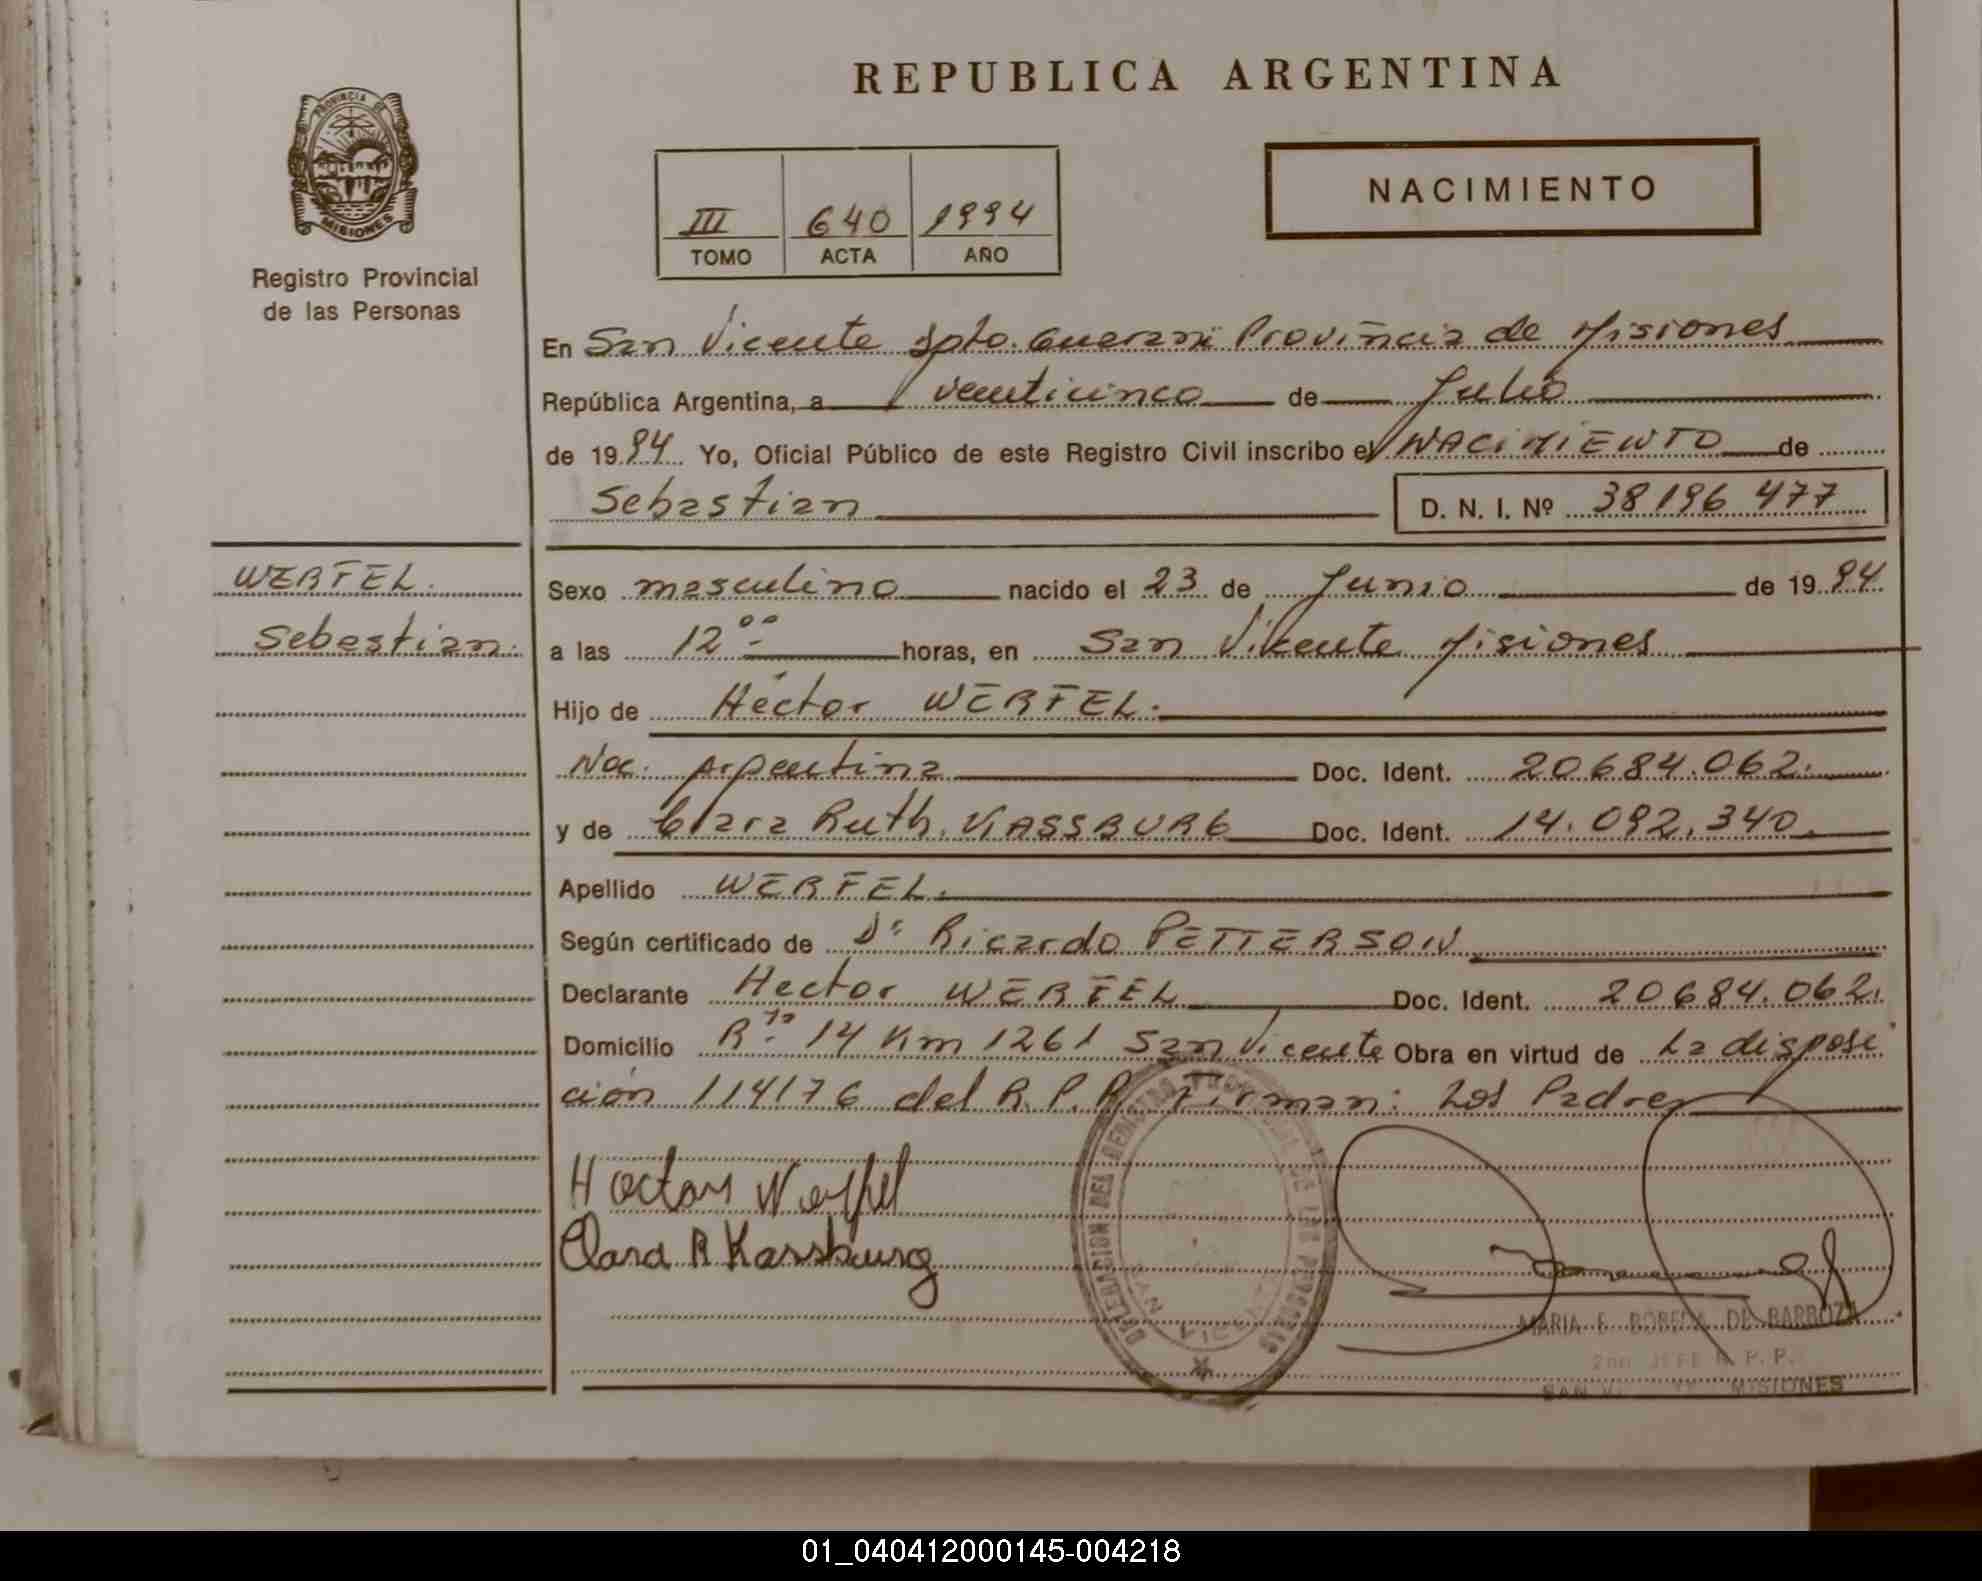 REPUBLICA ARGENTINA
PROVINCIA DE
MISIONES
Registro Provincial
de las Personas
III 640 1994
TOMO ACTA AÑO
NACIMIENTO
En San Vicente Dpto. Guarani Provincia de Misiones
República Argentina, a veinticinco de Julio
de 1994 Yo, Oficial Público de este Registro Civil inscribo el NACIMIENTO de
Sebastian D. N. I. Nº 38196477
WERFEL.
Sebastian.
Sexo masculino nacido el 23 de Junio de 1994
a las 12 00 horas, en San Vicente Misiones
Hijo de Héctor WERFEL.
Nac. Argentina Doc. Ident. 20684.062.
y de Clara Ruth KASSBURG Doc. Ident. 14.092.340.
Apellido WERFEL.
Según certificado de Dr Ricardo PETTERSON
Declarante Hector WERFEL Doc. Ident. 20684.062.
Domicilio Rta 14 Km 1261 San Vicente Obra en virtud de La disposi
ción 114176 del R.P.P. Firman: Los Padres
Hector Werfel
Clara R Kassburg
DELEGACION DEL REGISTRO PROVINCIAL DE LAS PERSONAS
MARIA E. DE BARBOZA
2do JEFE R. P. P.
MISIONES
01_040412000145-004218